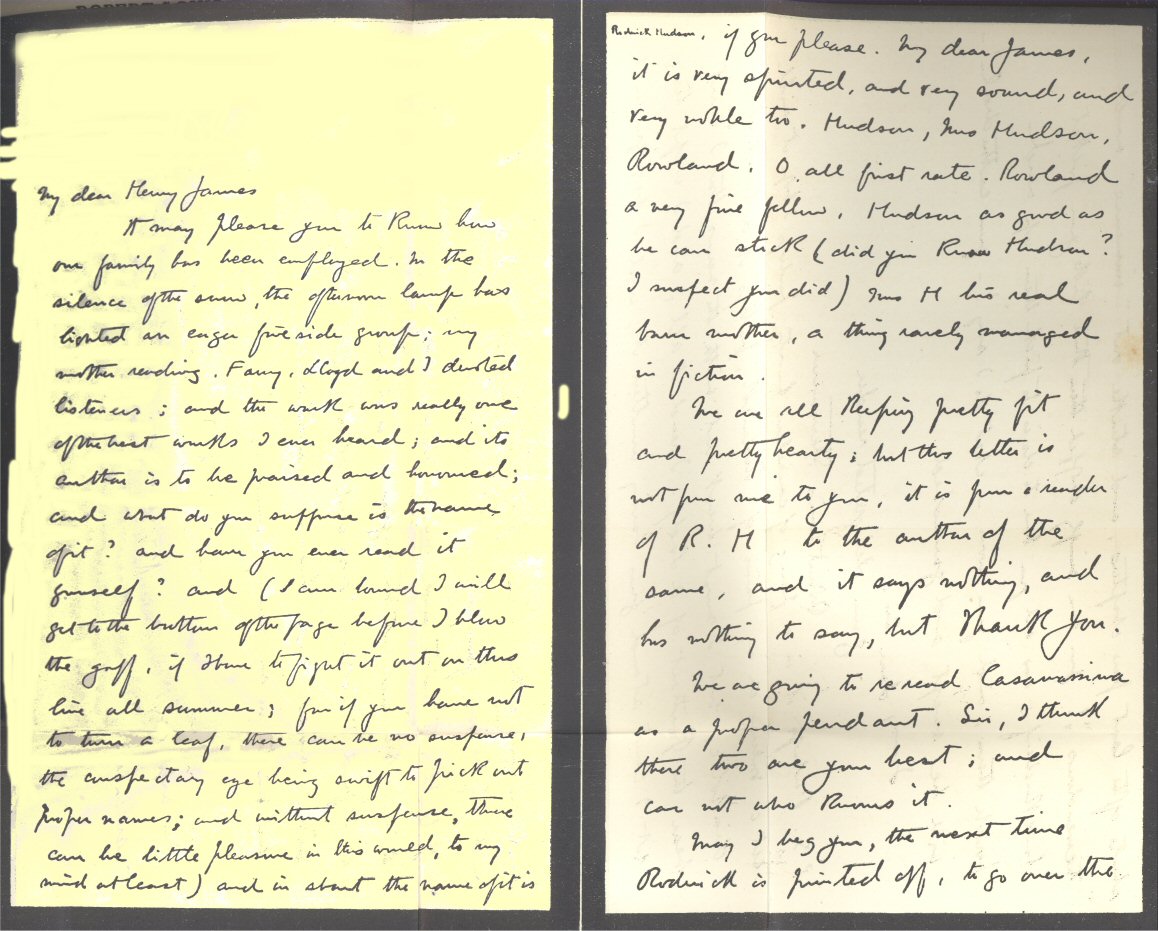 My dear Henry James
It may please you to know how
our family has been employed. In the
silence of the snow, the afternoon lamp has
lighted an eager fireside group; my
mother reading, Fanny, Lloyd and I devoted
listeners; and the work was really one
of the best works I ever heard; and its
author is to be praised and honoured;
and what do you suppose is the name
of it? and have you ever read it
yourself? and (I am bound I will
get to the bottom of the page before I blow
the gaff, if I have to fight it out on this
line all summer; for if you have not
to turn a leaf, there can be no suspense,
the conspectory eye being swift to pick out
proper names; and without suspense, there
can be little pleasure in this world, to my
mind at least) and in short the name of it is
Roderick Hudson, if you please. My dear James,
it is very spirited, and very sound, and
very noble too. Hudson, Mrs Hudson,
Rowland, O, all first rate. Rowland
a very fine fellow, Hudson as good as
he can stick (did you know Hudson?
I suspect you did) Mrs H his real
born mother, a thing rarely managed
in fiction.
We are all keeping pretty fit
and pretty hearty; but this letter is
not from me to you, it is from a reader
of R. H to the author of the
same, and it says nothing, and
has nothing to say, but Thank You.
We are going to reread Casamassima
as a proper pendant. Sir, I think
these two are your best; and
care not who knows it.
May I beg you, the next time
Roderick is printed off, to go over the